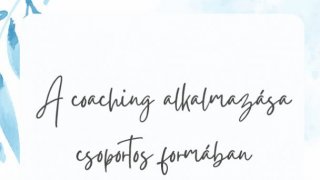 A coaching alkalmazása
csoportos formában